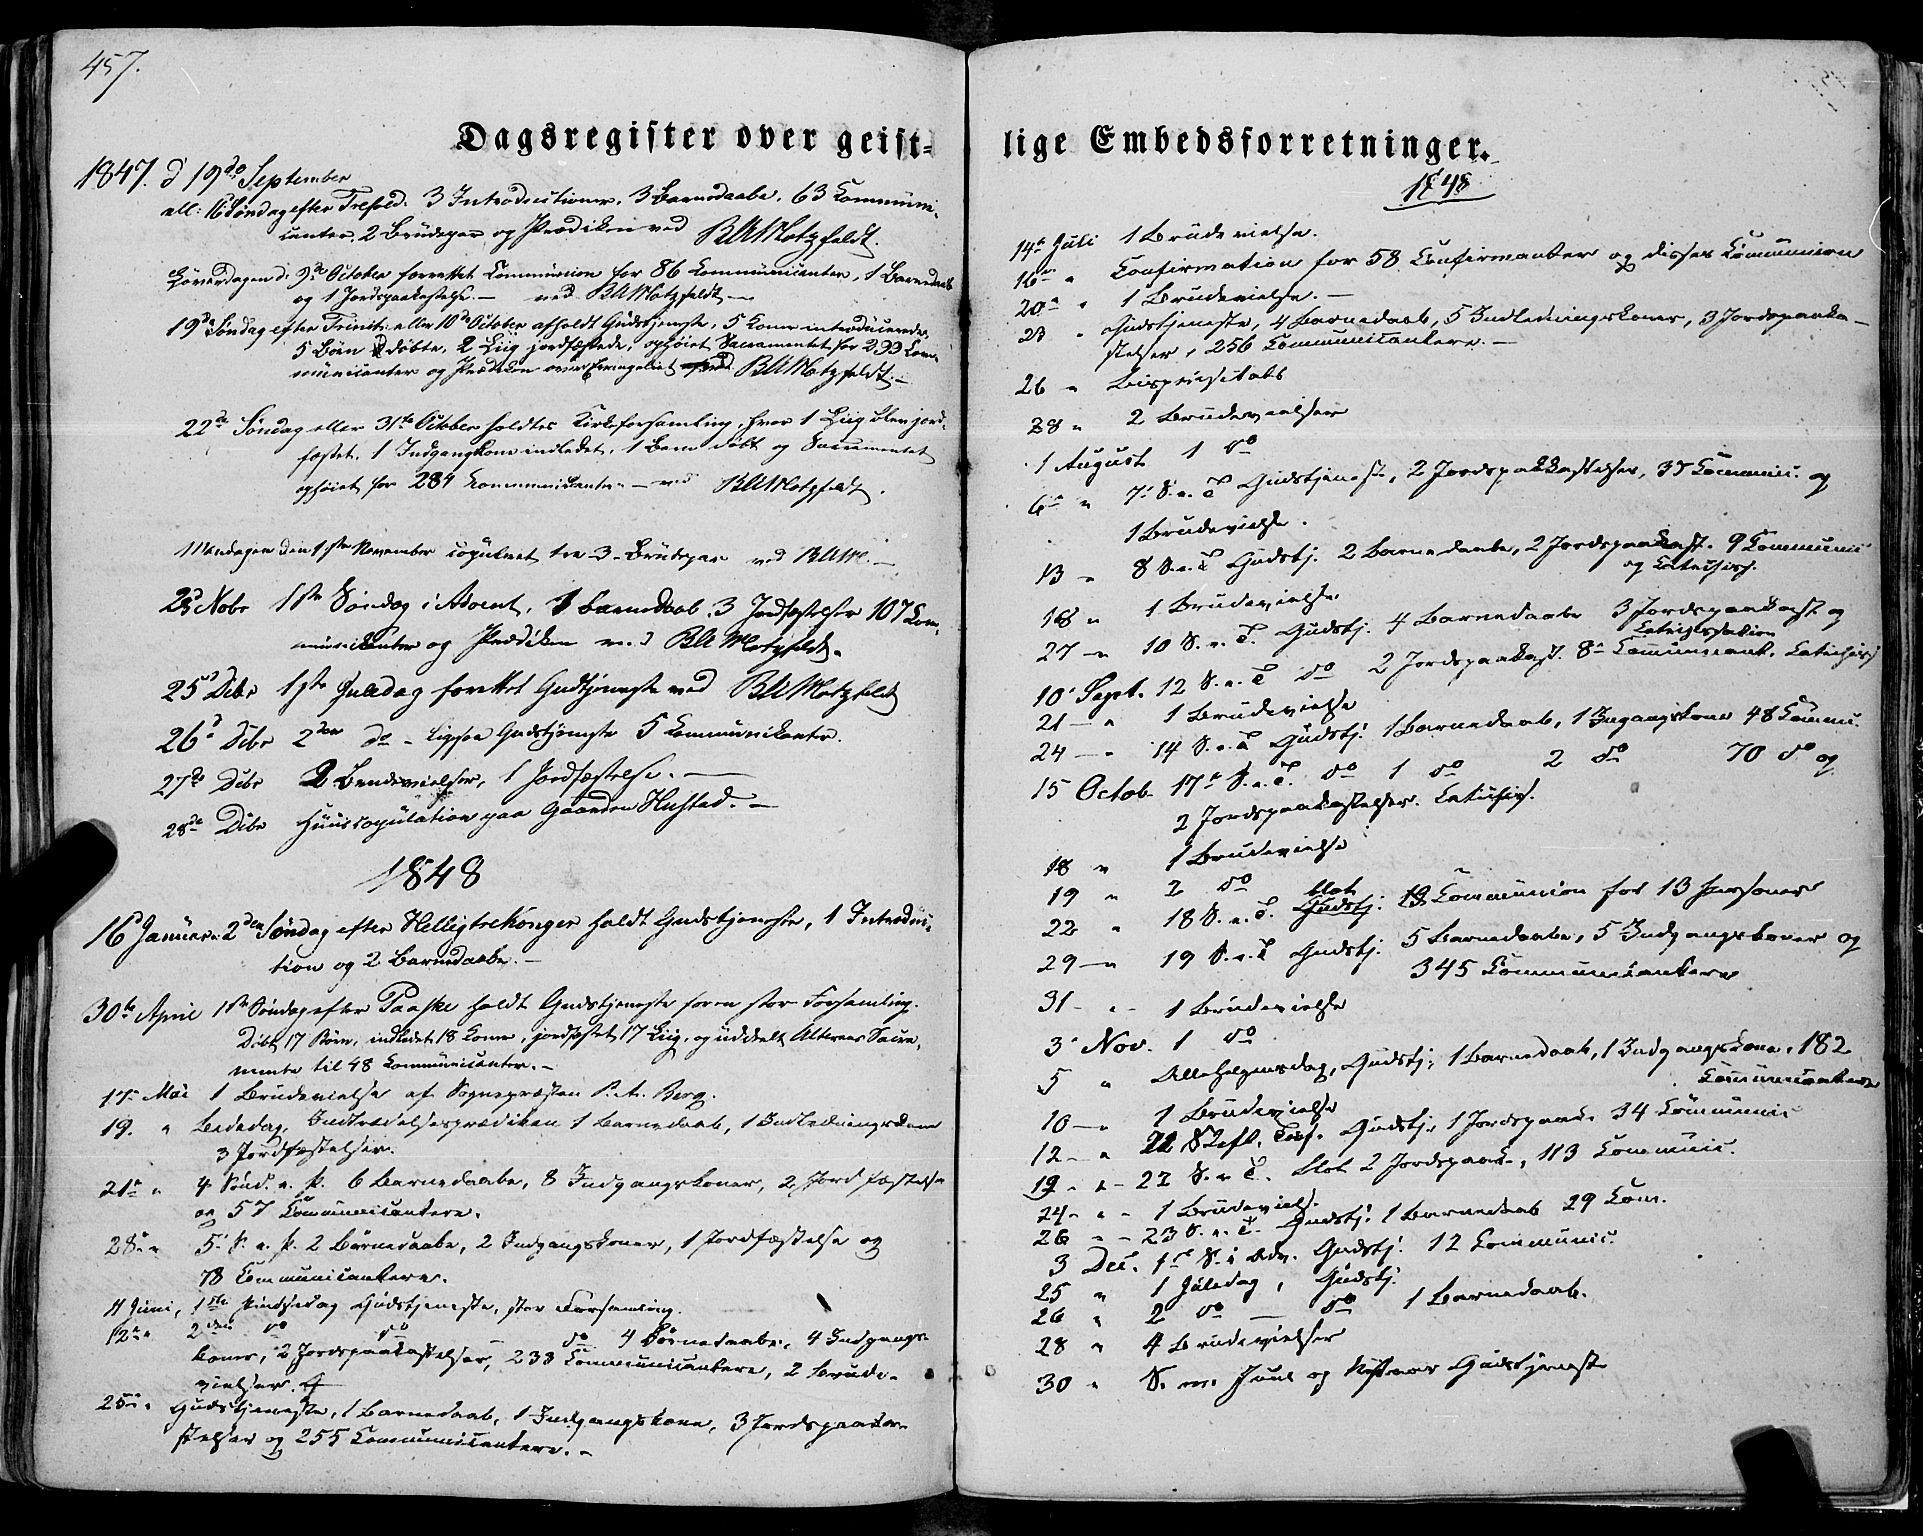 457.
Dagsregister over geist-
1847. d 19de September
ell: 16 Søndag efter Trefold. 3 Introductioner, 3 Barnedaabe, 63 Kommuni-
canter, 2 Brudepar og Prædiken ved BAMotzfeldt.
Løverdagen d. 9de October forrettet Communion for 86 Communicanter, 1 Barnedaab
og 1 Jordspaakastelse. — ved BAMotzfeldt —
19de Søndag efter Trinit: eller 10de October afholdt Gudstjeneste, 5 Koner introducerede,
5 Børn døbte, 2 Liig jordfæstede, ophøiet Sacramentet for 299 Com-
municanter og Prædiken over Evangeliet ved BAMotzfeldt. —
22de Søndag eller 31te October holdtes Kirkeforsamling, hvor 1 Liig blev jord-
fæstet, 1 Indgangskone indledet, 1 Barn døbt og Sacramentet
ophøiet for 284 Communicanter — ved BAMotzfeldt.
Mandagen den 1ste November copuleret tre - 3 - Brudepar ved BAM. —
28d Nobr 1ste Søndag i Advent, 1 Barnedaab, 3 Jordfæstelser 107 Kom-
municanter og Prædiken ved BAMotzfeldt.
25d Debr 1ste Juledag forrettet Gudtjeneste ved BAMotzfeldt
26d Debr 2den do - ligesaa Gudstjeneste 5 Kommunikanter.
27de Debr 2 Brudevielser, 1 Jordfæstelse. —
28de Debr Huuscopulation paa Gaarden Hustad. —
1848
16 Januar 2den Søndag efter Helligtrekonger holdt Gudstjeneste, 1 Introduc-
tion og 2 Barnedaabe. —
30te April 1ste Søndag efter Paaske holdt Gudstjeneste for en stor Forsamling.
Døbt 17 Børn, indledet 18 Koner, jordfæstet 17 Liig, og uddeelt Alterens Sacra-
mente til 48 Communicanter. —
17. Mai 1 Brudevielse af Sognepræsten P. A. Berg.
19. " Bededag, Indtrædelsesprædiken 1 Barnedaab, 1 Indledningskone
3 Jordfæstelser.
21 " 4 Sønd. e. P. 6 Barnedaabe, 8 Indgangskoner, 2 Jordfæstelse
og 57 Communicantere.
28 " 5. S. e. P. 2 Barnedaabe, 2 Indgangskoner, 1 Jordfæstelse og
78 Communicantere.
11 Juni, 1ste Pindsedag Gudstjeneste, stor Forsamling.
12 " 2den do do do 4 Barnedaabe, 4 Indgangs-
koner, 2 Jordspaakastelser, 233 Communicantere, 2 Brude-
vielser.
25 " Gudstjeneste, 1 Barnedaab, 1 Indgangskone, 3 Jordspaaka-
stelser og 255 Communicantere. —
lige Embedsforretninger.
1848
14 Juli 1 Brudevielse.
16 " Confirmation for 58 Confirmanter og disses Communion
20 " 1 Brudevielse. —
23 " Gudstjeneste, 4 Barnedaab, 5 Indledningskoner, 3 Jordspaaka-
stelser, 256 Communicantere. —
26 " Bispevisitats
28 " 2 Brudevielser
1 August 1 do
6 " 7. S. e. T. Gudstjeneste, 2 Jordspaakastelser, 35 Communic. og
1 Brudevielse.
13 " 8 S. e. T. Gudstj. 2 Barnedaabe, 2 Jordspaakast. 9 Communic
og Catechis.
18 " 1 Brudevielse
27 " 10 S. e. T. Gudstj. 4 Barnedaabe 3 Jordspaakast og
Catechisation
10 Sept. 12 S. e. T. do 2 Jordspaakast. 8 Communicant. Catechis
21 " 1 Brudevielse
24 " 14 S. e. T. Gudstj. 1 Barnedaab, 1 Ingangskone 48 Commu.
15 Octob. 17 S. e. T. do 1 do 2 do 70 do og
2 Jordspaakastelser. Catechis.
18 " 1 Brudevielse
19 " 2 do
22 " 18 S. e. T. blot Communion for 13 Personer
29 " 19 S. e. T. Gudstj. 5 Barnedaabe, 5 Indgangskoner og
345 Communicantere
31 " 1 Brudevielse
3 Nov. 1 do
5 " Allehelgensdag, Gudstj. 1 Barnedaab, 1 Indgangskone, 182
Communicantere
10 " 1 Brudevielse
12 " 21 S. eft. Tref. Gudstj. 1 Jordspaak. 34 Communic
19 " 22 S. e. T. blot 2 Jordspaak., 113 Communic.
24 " 1 Brudevielse.
26 " 23 S. e. T. Gudstj. 1 Barnedaab 29 Com.
3 Dec. 1 S. i Adv. Gudstj. 12 Communic.
25 " 1 Juledag, Gudstj.
26 " 2 do — do 1 Barnedaab.
28 " 4 Brudevielser
30 " S. m. Juul og Nytaar Gudstjeneste